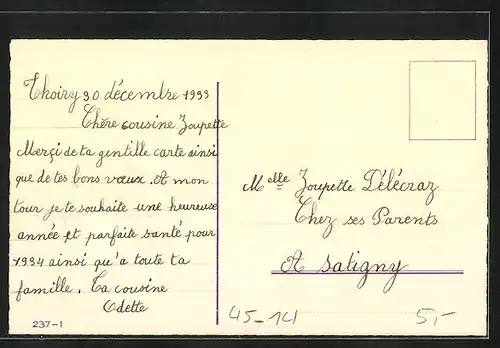 Thoiry 30 décembre 1933
Chère cousine Zoupette
Merçi de ta gentille carte ainsi
que de tes bons vœux. A mon
tour je te souhaite une heureuse
année et parfaite santé pour
1934 ainsi qu'a toute ta
famille. Ta cousine
Odette
237-1
Melle Zoupette Délécraz
Chez ses Parents
A Satigny
45-141
5,-